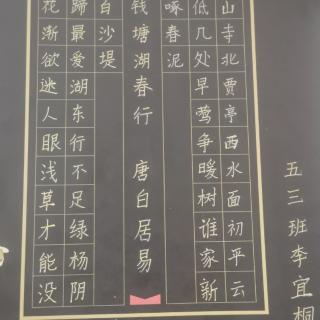 山寺北贾亭西水面初平云
低几处早莺争暖树谁家新
啄春泥
钱塘湖春行 唐白居易
花渐欲迷人眼浅草才能没
蹄最爱湖东行不足绿杨阴
白沙堤
五三班李宜桐